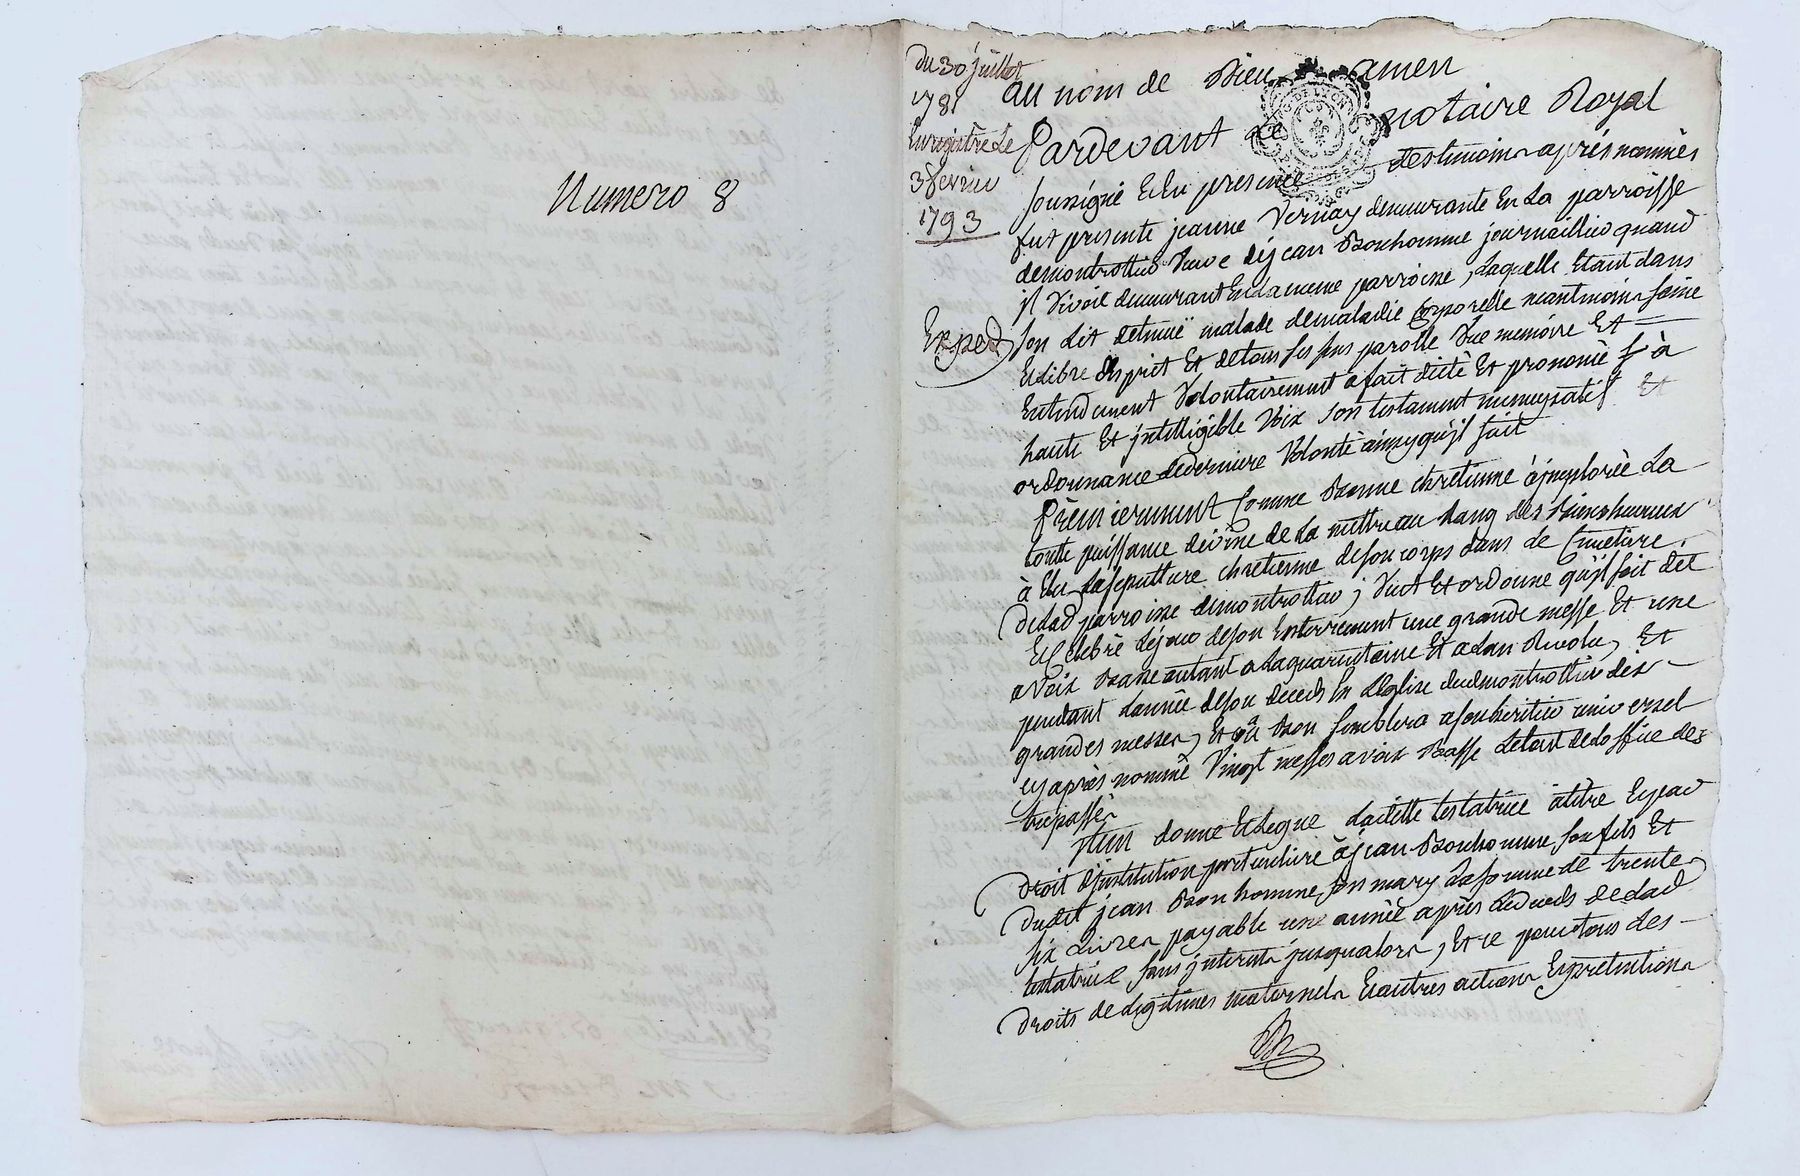 Numero 8
du 30 juillet
1781
Enregistré Le
3 fevrier
1793
Exped
au nom de Dieu amen
Pardevant Le notaire Royal
soussigné Et En presence des temoins après nommès
fut presente jeanne Vernay demeurante En La parroisse
demontrottier Veuve dejean Bonhomme journaillier quand
il vivoit demeurant En La meme parroisse, Laquelle Etant dans
son Lit detenuë malade demaladie Corporelle neantmoins saine
Et libre desprit Et detous ses sens parolle Vue memoire Et
Entendement Volontairement a fait dictè Et prononcè à
haute Et jntelligible Voix son testament nuncupatif Et
ordonnance dederniere Volonté ainsy qu'jl suit
Prèmierement Comme Bonne chretienne à jmplorèe La
toutte puissance divine de La mettre au Rang des Bienheureux
à Elu Lasepulture chretienne deson corps dans Le Cimetiere
deLad parroisse demontrottier; Veut Et ordonne qu'jl soit dit
Et Celebrè Lejour deson Enterrement une grande messe Et une
a voix Basse autant a Laquarantaine Et a Lan Revolu, Et
pendant Lannée deson décèds En LEglise dud montrottier dix
grandes messes, Et où Bon semblera a son heritier universel
cy après nommè Vingt messes a voix Basse Letout deLoffice des
trepassés
Item donne Et Legue Laditte testatrice atitre Et par
droit d'jnstitution particuliere à jean Bonhomme son fils Et
dudit jean Bonhomme son mary La somme de trente
six Livres payable une année après Ledeceds de Lad
testatrice sans jnterets jusqualors, Et ce pour tous Les
droits de Légitimes maternels Et autres actions Et pretentions